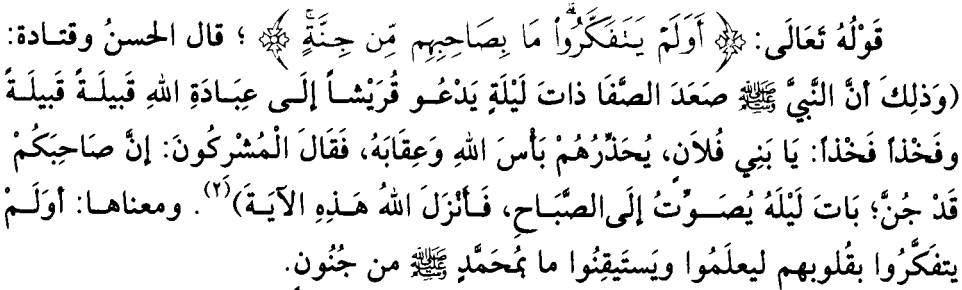 قَوْلُهُ تَعَالَى: ﴿ أَوَلَمْ يَتَفَكَّرُواْ مَا بِصَاحِبِهِم مِّن جِنَّةٍ ﴾ ؛ قال الحسنُ وقتادة:
(وَذَلِكَ أنَّ النَّبِيَّ ﷺ صَعَدَ الصَّفَا ذاتَ لَيْلَةٍ يَدْعُو قُرَيْشاً إلَى عِبَادَةِ اللهِ قَبِيلَةً قَبِيلَةً
وفَخْذاً فَخْذاً: يَا بَنِي فُلاَنٍ، يُحَذِّرُهُمْ بَأْسَ اللهِ وَعِقَابَهُ، فَقَالَ الْمُشْرِكُونَ: إنَّ صَاحِبَكُمْ
قَدْ جُنَّ؛ بَاتَ لَيْلَهُ يُصَوِّتُ إلَى الصَّبَاحِ، فَأَنْزَلَ اللهُ هَذِهِ الآيَةَ)(٢). ومعناها: أوَلَمْ
يتفكَّرُوا بقُلوبهم ليعلَمُوا ويَستَيقِنُوا ما بمُحَمَّدٍ ﷺ من جُنُونٍ.